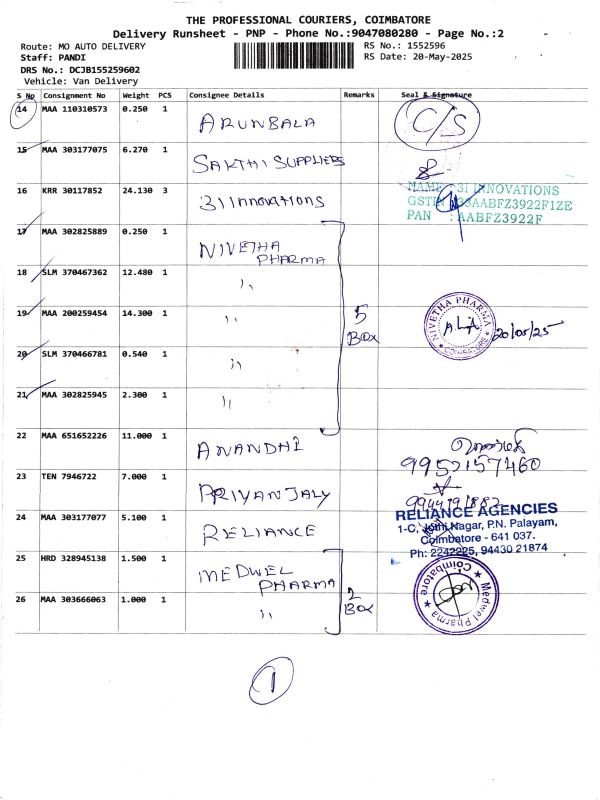 THE PROFESSIONAL COURIERS, COIMBATORE
Delivery Runsheet - PNP - Phone No.:9047080280 - Page No.:2
Route: MO AUTO DELIVERY
RS No.: 1552596
Staff: PANDI
RS Date: 20-May-2025
DRS No.: DCJB155259602
Vehicle: Van Delivery
S No Consignment No Weight PCS Consignee Details Remarks Seal & Signature
14 MAA 110310573 0.250 1 ARUNBALA C/S
15 MAA 303177075 6.270 1 SAKTHI SUPPLIERS
16 KRR 30117852 24.130 3 3I Innovations
NAME : 3I INNOVATIONS
GSTIN : 33AABFZ3922F1ZE
PAN : AABFZ3922F
17 MAA 302825889 0.250 1 NIVETHA PHARMA
18 SLM 370467362 12.480 1 ,,
19 MAA 200259454 14.300 1 ,, 5 Box
NIVETHA PHARMA
COIMBATORE
20/05/25
20 SLM 370466781 0.540 1 ,,
21 MAA 302825945 2.300 1 ,,
22 MAA 651652226 11.000 1 ANANDHI
9952157460
23 TEN 7946722 7.000 1 PRIYANJALY
24 MAA 303177077 5.100 1 RELIANCE
RELIANCE AGENCIES
1-C, Jothi Nagar, P.N. Palayam,
Coimbatore - 641 037.
Ph: 2242225, 94430 21874
25 HRD 328945138 1.500 1 MEDWEL PHARMA
26 MAA 303666063 1.000 1 ,, 2 Box
Medwel Pharma
Coimbatore
1